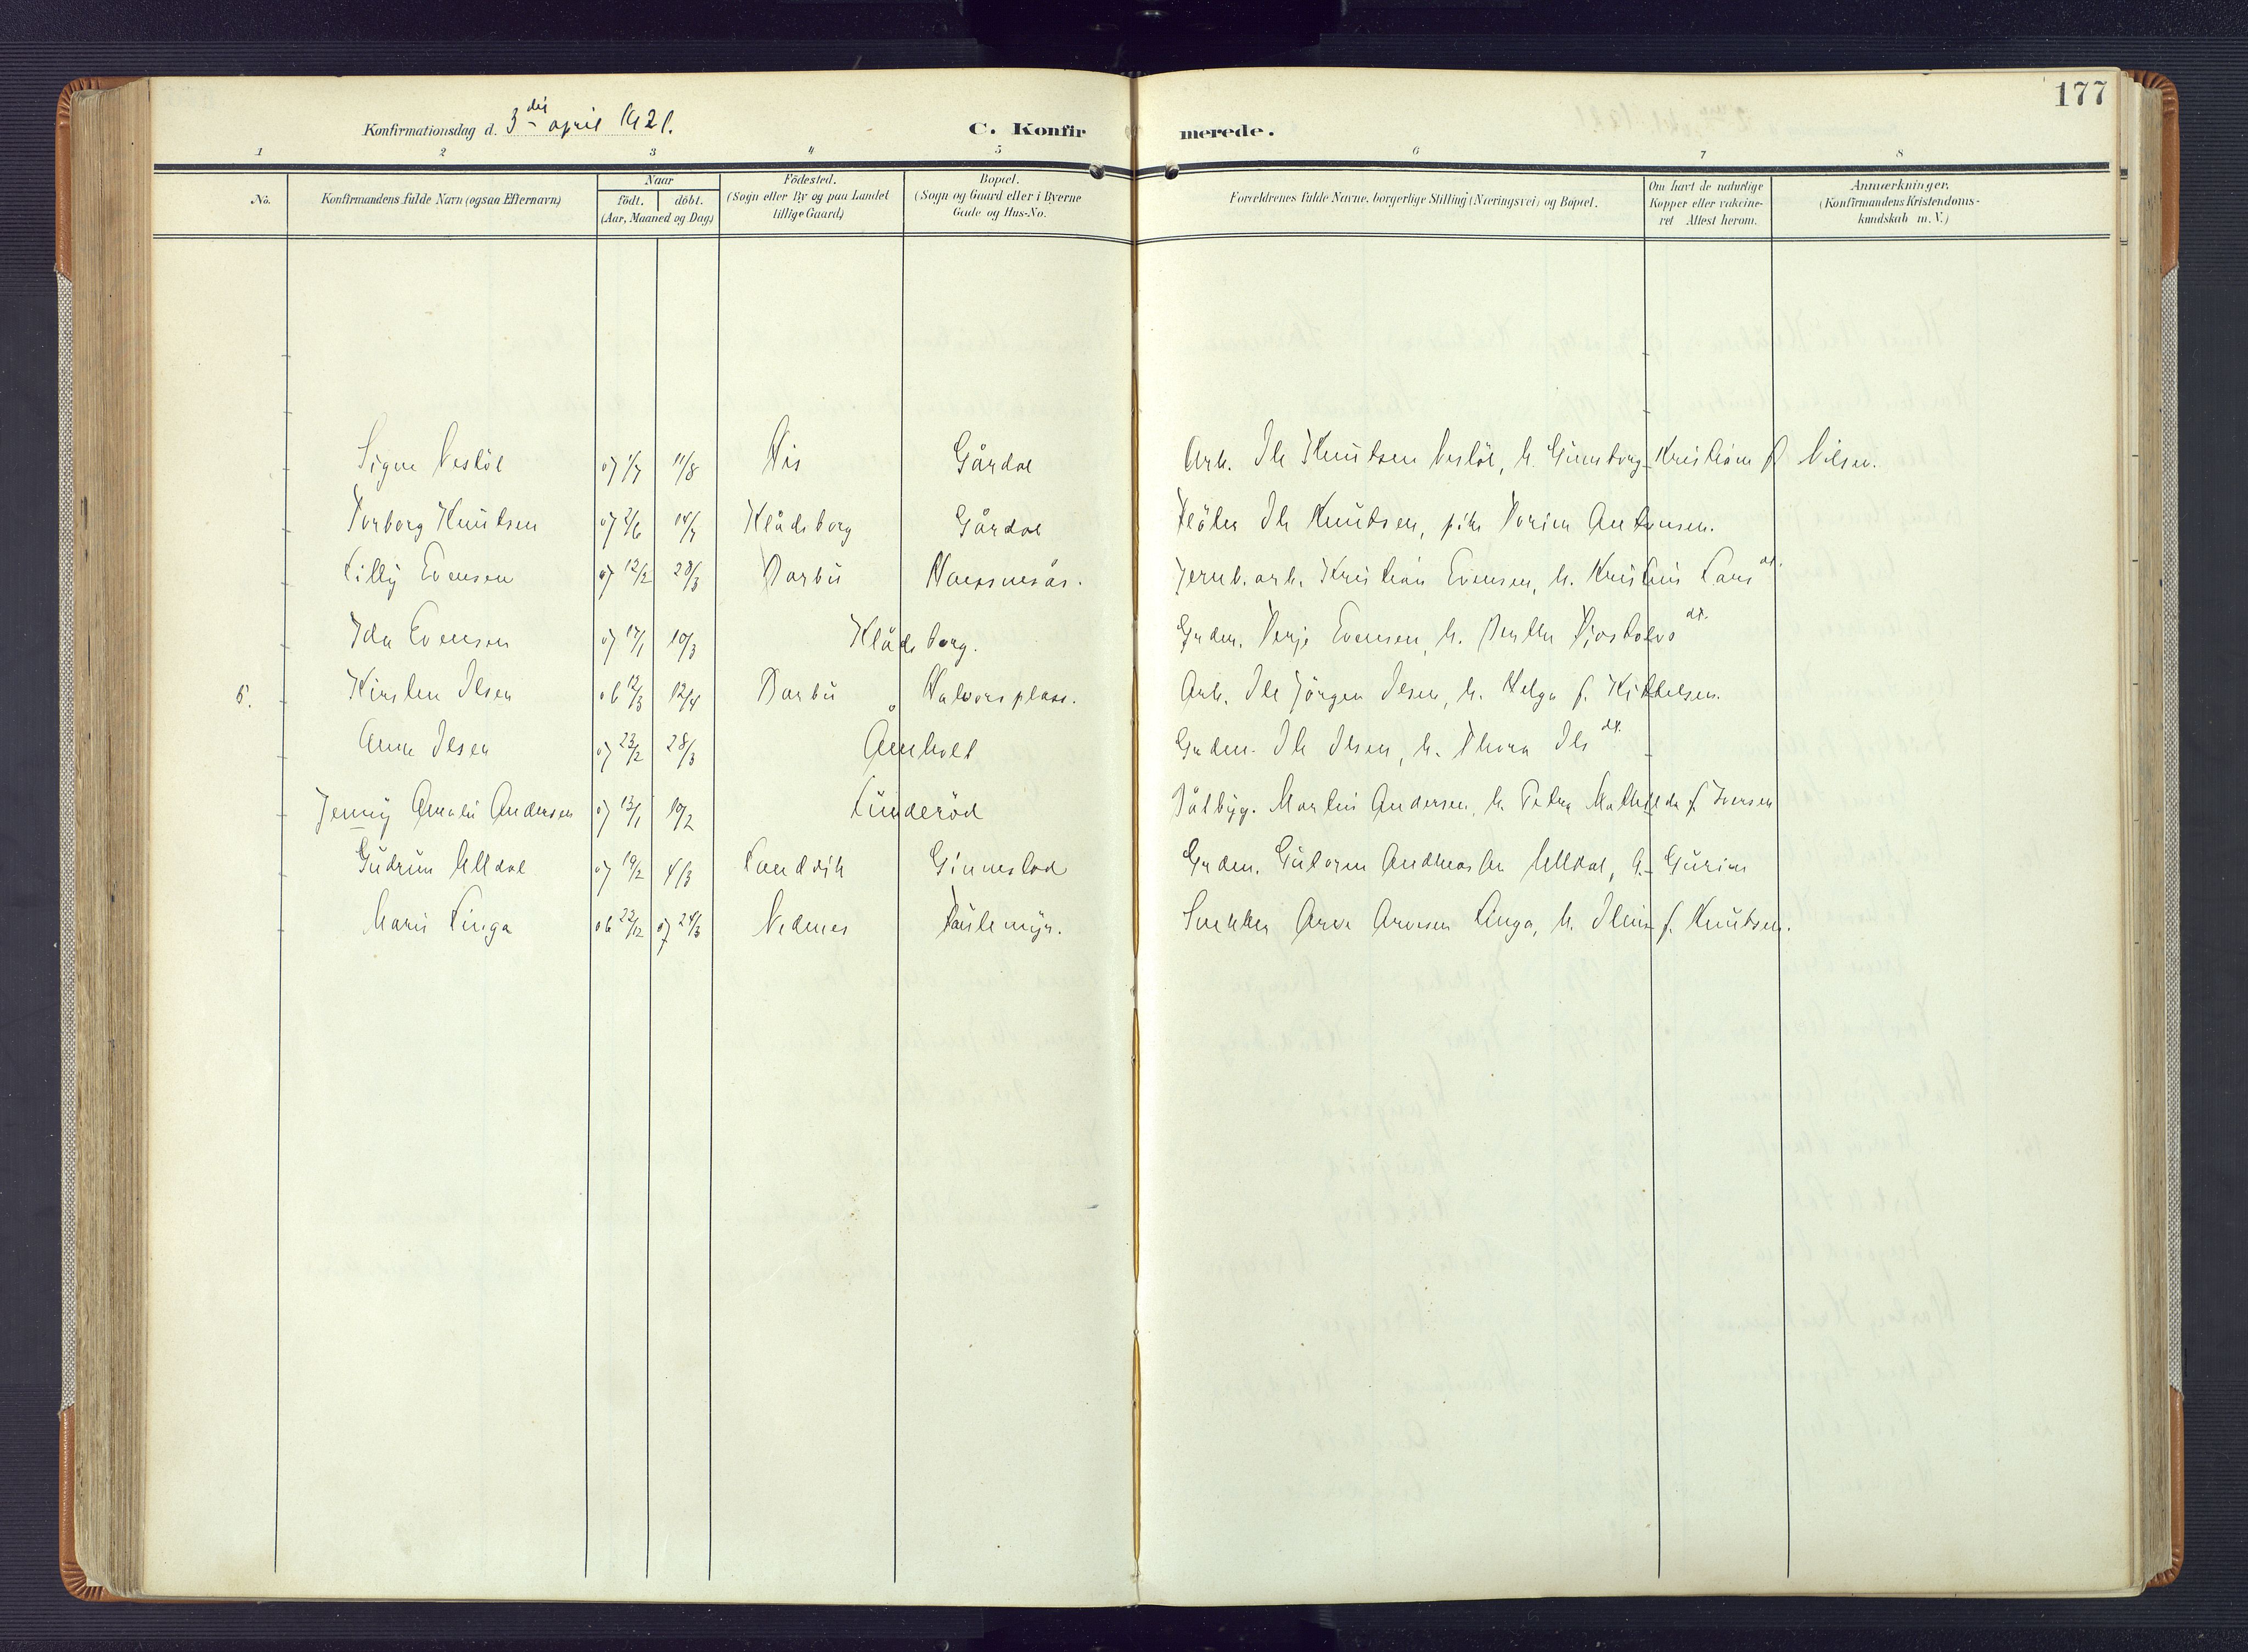 177
Konfirmationsdag d. 3die april 1921.
C. Konfirmerede.
1 2 3 4 5 6 7 8
No.
Konfirmandens fulde Navn (ogsaa Efternavn)
Naar
födt. döbt.
(Aar, Maaned og Dag)
Födested.
(Sogn eller By og paa Landet
tillige Gaard)
Bopæl.
(Sogn og Gaard eller i Byerne
Gade og Hus-No.
Forældrenes fulde Navne, borgerlige Stilling (Næringsvei) og Bopæl.
Om havt de naturlige
Kopper eller vakcine-
ret Attest herom.
Anmærkninger.
(Konfirmandens Kristendoms-
kundskab m. V.)
Signe Vesløl 07 1/7 11/8 His Gårdal Arb. Ole Knutsen Vesløl, h. Gunborg Kristiane f. Nilsen.
Torborg Knutsen 07 2/6 14/7 Klådeborg Gårdal Fløter Ole Knutsen, pike Torine Antonsen.
Lilly Evensen 07 12/2 28/3 Barbu Jernb.arb. Kristian Evensen, h. Kristine Larsdt.
Ida Evensen 07 17/1 10/3 Klådeborg. Grdm. Terje Evensen, h. Berthe Tjostolvsdt.
5. Kirsten Olsen 06 12/3 12/4 Barbu Halvorsplass. Arb. Ole Jörgen Olsen, h. Helga f. Kittelsen.
Anna Olsen 07 23/2 28/3 Amholt Grdm. Ole Olsen, h. Thora Olsdt.
Jenny Amalie Andersen 07 13/1 10/2 Lunderöd Båtbyg. Martin Andersen, h. Petra Mathilde f. Iversen
Gudrun Ulldal 07 19/2 4/3 Landvik Ginnestad Grdm. Gutorm Andreassen Ulldal, h. Gurine
Marie Linga 06 22/12 07 24/3 Nedenes Snekker Arve Arvesen Linga, h. Oline f. Knutsen.